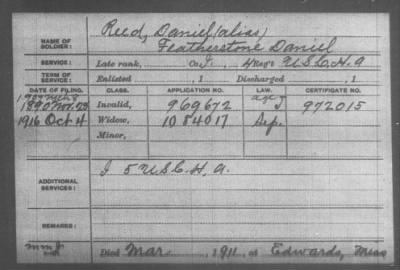 NAME OF SOLDIER: Reed, Daniel (alias)
Featherstone Daniel
SERVICE: Late rank, Co. I, 4 Reg't U.S.C.H.A
TERM OF SERVICE: Enlisted , 1 Discharged , 1
DATE OF FILING. CLASS. APPLICATION NO. LAW. CERTIFICATE NO.
1890 Nov. 23 Invalid, 969672 972015
1916 Oct 4 Widow, 1084017 Sep.
Minor,
ADDITIONAL SERVICES: I 5 U.S.C.H.A.
REMARKS:
Died Mar , 1911, at Edwards, Miss